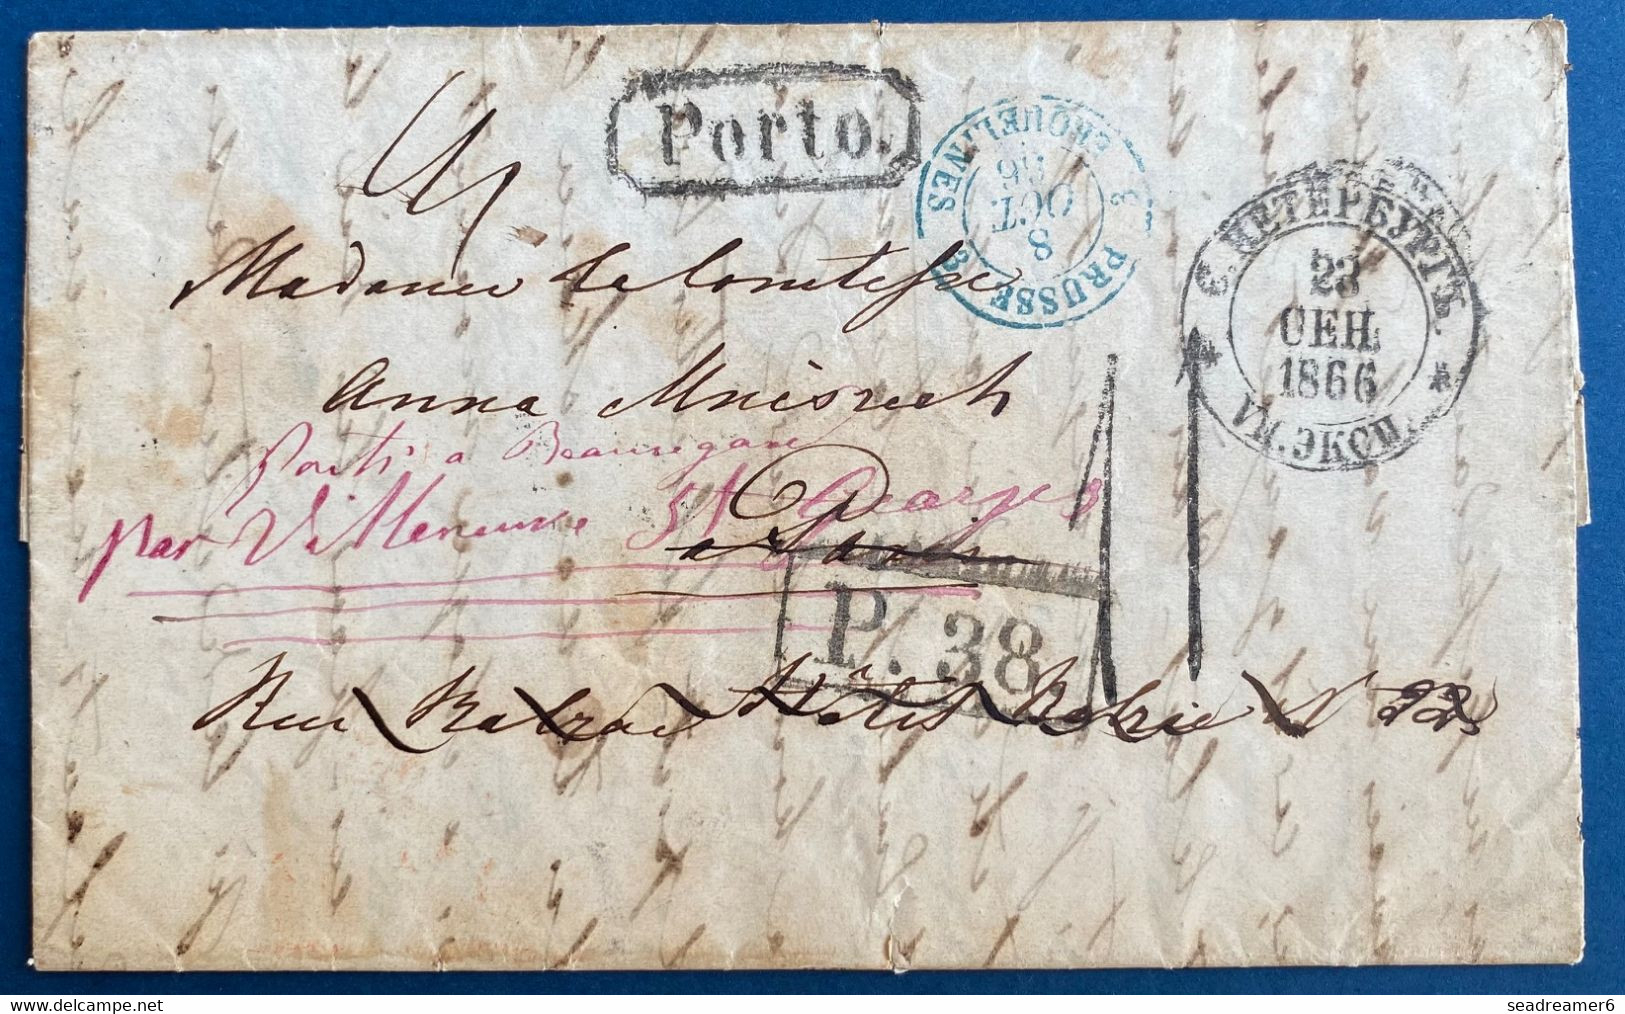 Porto.
3 PRUSSE 3 ERQUELINES
8
OCT.
66
С. ПЕТЕРБУРГЪ.
23
СЕН.
1866
И. ЭКСП.
Madame la Comtesse
Anna Mniszech
Parti a Beauregard
par Villeneuve St Georges
a Paris
P. 38
11
Rue Balzac Hôtel N 22
seadreamer6
© www.delcampe.net